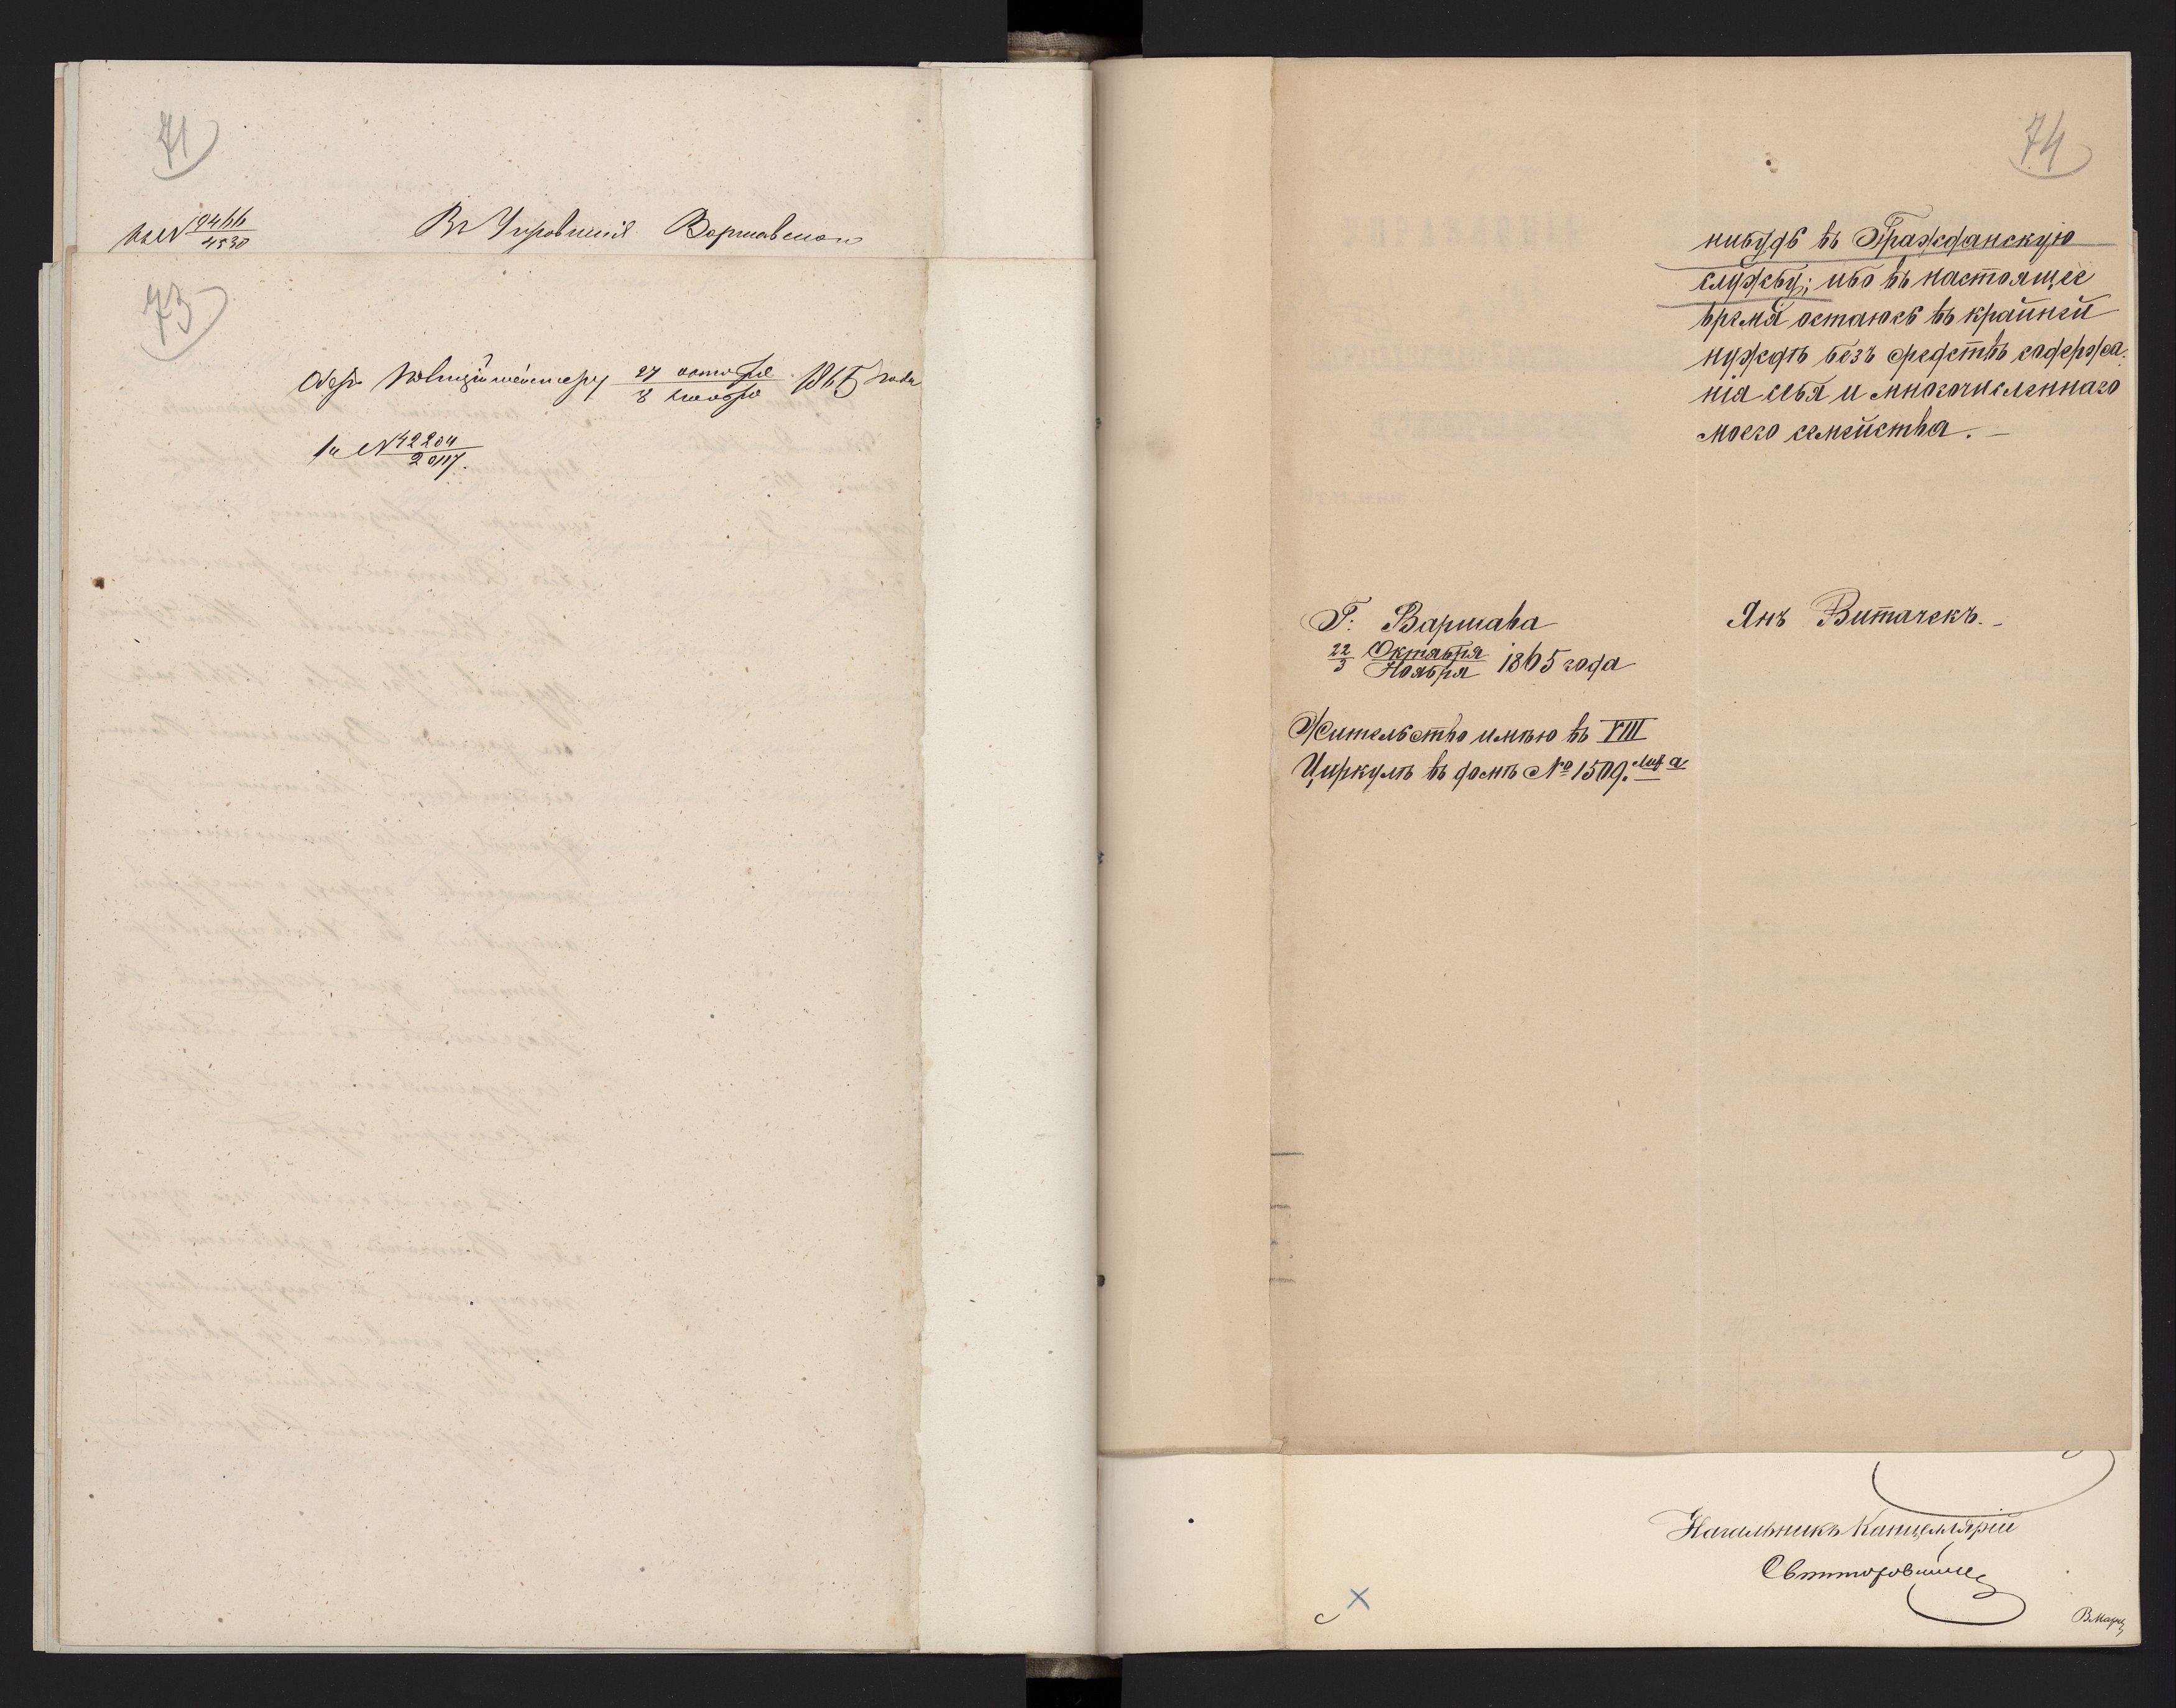 71
№ 19466/4530
Въ Управленiе Варшавскаго
73
Оберъ Полицiймейстеру 27 октября/8 ноября 1865 года
№ 42204/20117.
74
нибудь въ Гражданскую
службу; ибо въ настоящее
время остаюсь въ крайней
нуждѣ безъ средствъ содержа-
нія себя и многочисленнаго
моего семейства. —
Г: Варшава
22/3 Октября/Ноября 1865 года
Янъ Витачекъ. —
Жительство имѣю въ VIII
Циркулѣ въ домѣ № 1509. лит а
Начальникъ Канцеляріи